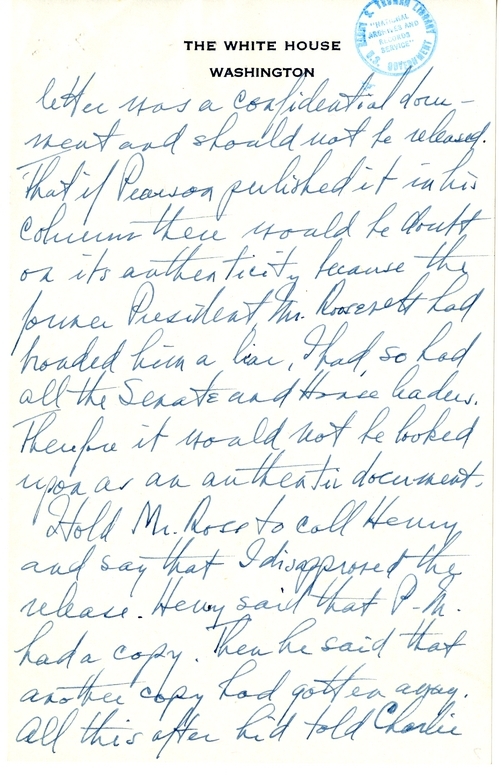 THE WHITE HOUSE
WASHINGTON
HARRY S. TRUMAN LIBRARY
"NATIONAL
ARCHIVES AND
RECORDS
SERVICE"
U.S. GOVERNMENT
letter was a confidential docu-
ment and should not be released.
That if Pearson published it in his
column there would be doubt
on its authenticity because the
former President Mr. Roosevelt had
branded him a liar, I had, so had
all the Senate and House leaders.
Therefore it would not be looked
upon as an authentic document.
I told Mr. Ross to call Henry
and say that I disapproved the
release. Henry said that P.M.
had a copy. Then he said that
another copy had gotten away.
All this after he'd told Charlie